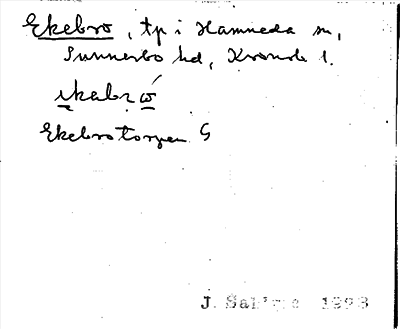 Ekebro, tp i Hamneda sn,
Sunnerbo hd, Kronob l.
Ekebrotorpen G
J. Sahlgre 1928